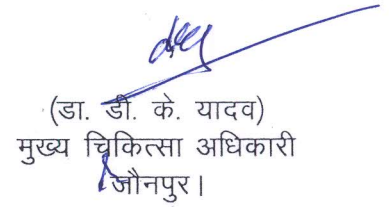 (डा. डी. के. यादव)
मुख्य चिकित्सा अधिकारी
जौनपुर।